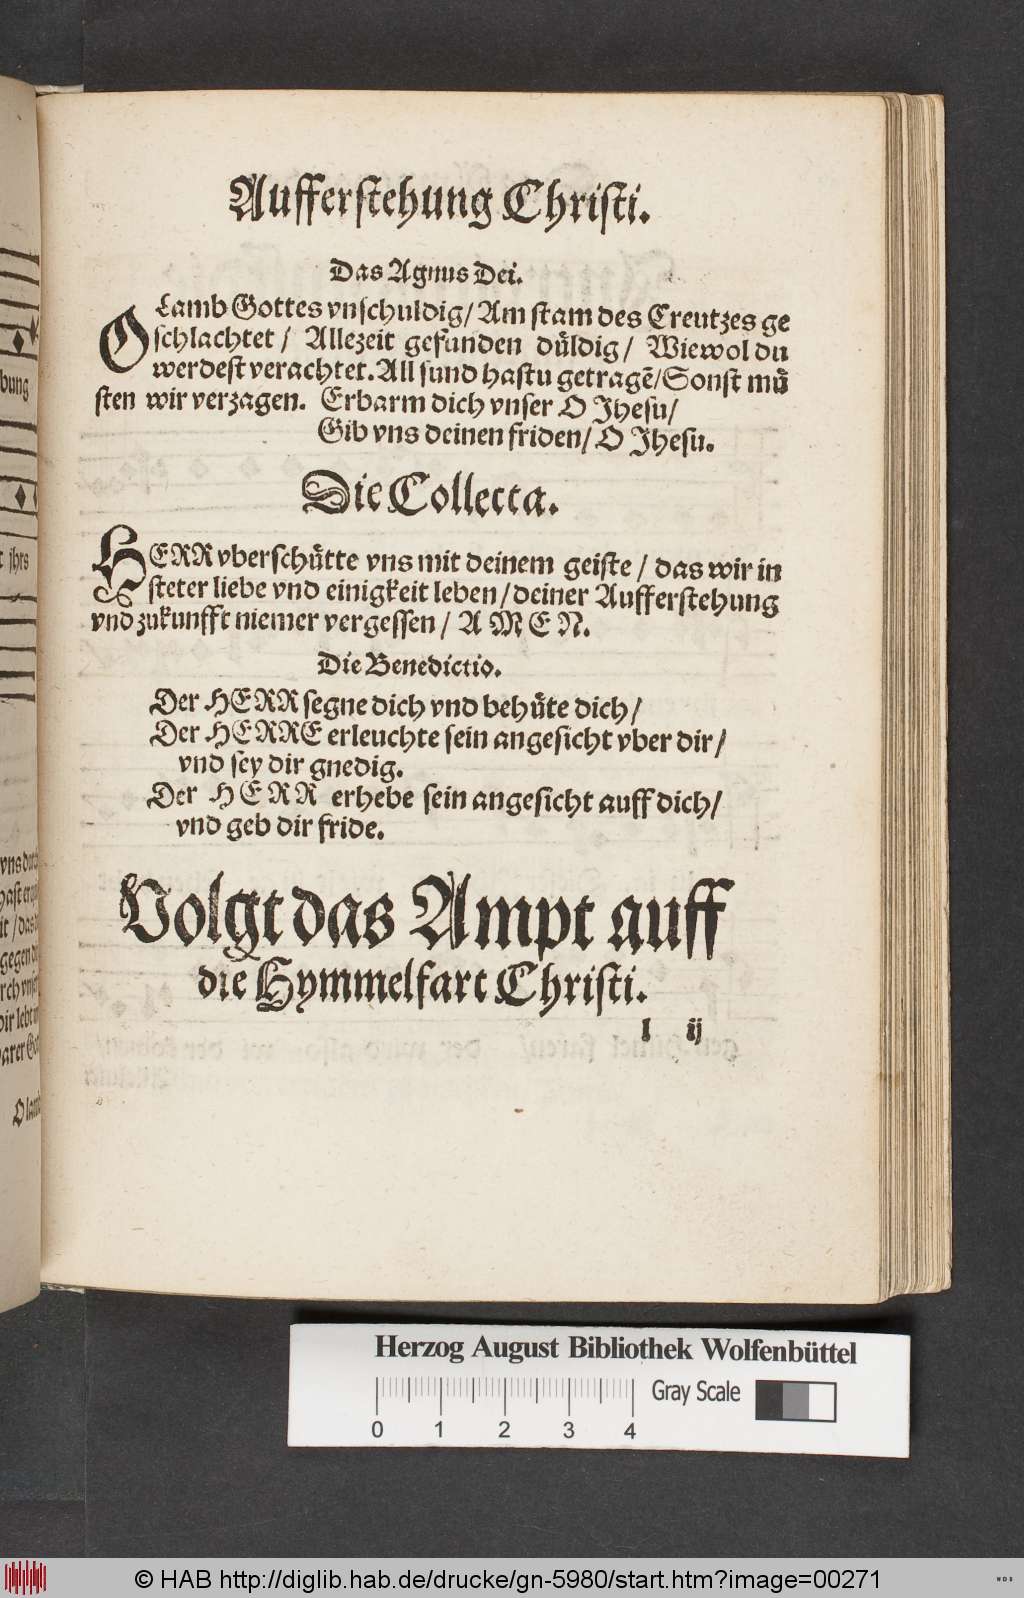 Aufferstehung Christi.
Das Agnus Dei.
O Lamb Gottes vnschuldig/ Am stam des Creutzes ge
schlachtet / Allezeit gefunden düldig/ Wiewol du
werdest verachtet. All sund hastu getragē/ Sonst mü
sten wir verzagen. Erbarm dich vnser O Jhesu/
Gib vns deinen friden/ O Jhesu.
Die Collecta.
HERR vberschütte vns mit deinem geiste / das wir in
steter liebe vnd einigkeit leben / deiner Aufferstehung
vnd zukunfft niemer vergessen / A M E N.
Die Benedictio.
Der HERR segne dich vnd behüte dich/
Der HERRE erleuchte sein angesicht vber dir/
vnd sey dir gnedig.
Der HERR erhebe sein angesicht auff dich/
vnd geb dir fride.
Volgt das Ampt auff
die Hymmelfart Christi.
l ij
bung
t jhrs
gegen
O lam
Herzog August Bibliothek Wolfenbüttel
0 1 2 3 4
Gray Scale
© HAB http://diglib.hab.de/drucke/gn-5980/start.htm?image=00271